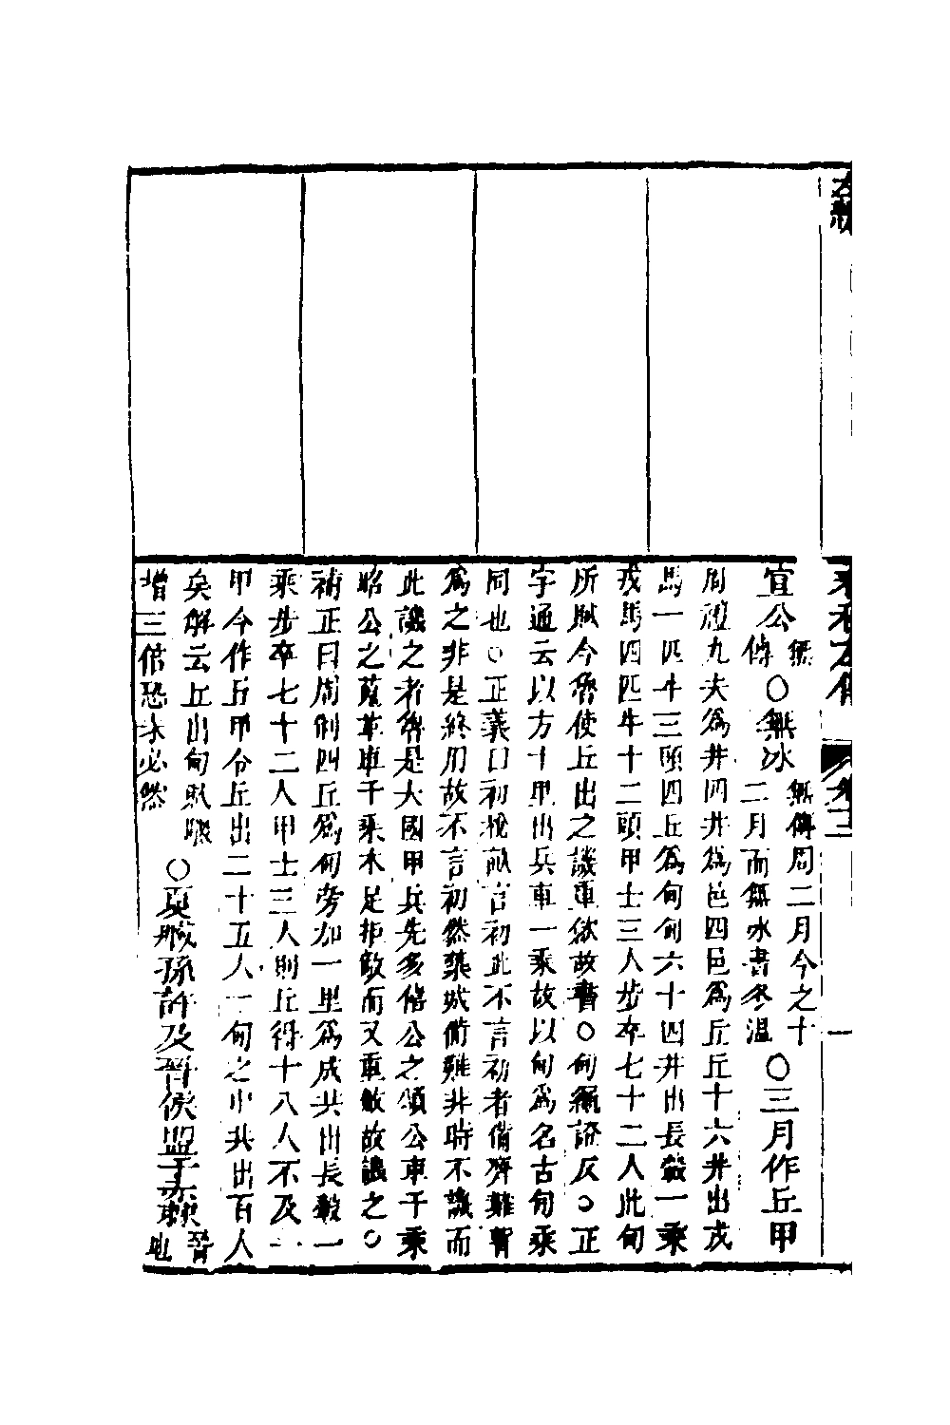 宣公
無傳
○無冰
無傳周二月今之十
二月而無冰書冬溫
○三月作丘甲
周禮九夫為井四井為邑四邑為丘丘十六井出戎
馬一匹牛三頭四丘為甸甸六十四井出長轂一乘
戎馬四匹牛十二頭甲士三人步卒七十二人此甸
所賦今魯使丘出之譏重斂故書○甸繩證反○正
字通云以方十里出兵車一乘故以甸為名古甸乘
同也○正義曰初稅畝言初此不言初者備齊難暫
為之非是終用故不言初然築城備難非時不譏而
此譏之者魯是大國甲兵先多僖公之頌公車千乘
昭公之蒐革車千乘木足拒敵而又重斂故譏之○
補正曰周制四丘為甸旁加一里為成共出長轂一
乘步卒七十二人甲士三人則丘得十八人不及一
甲今作丘甲令丘出二十五人一甸之中共出百人
矣解云丘出甸賦驟
增三倍恐未必然
○夏臧孫許及晉侯盟于赤棘
晉地